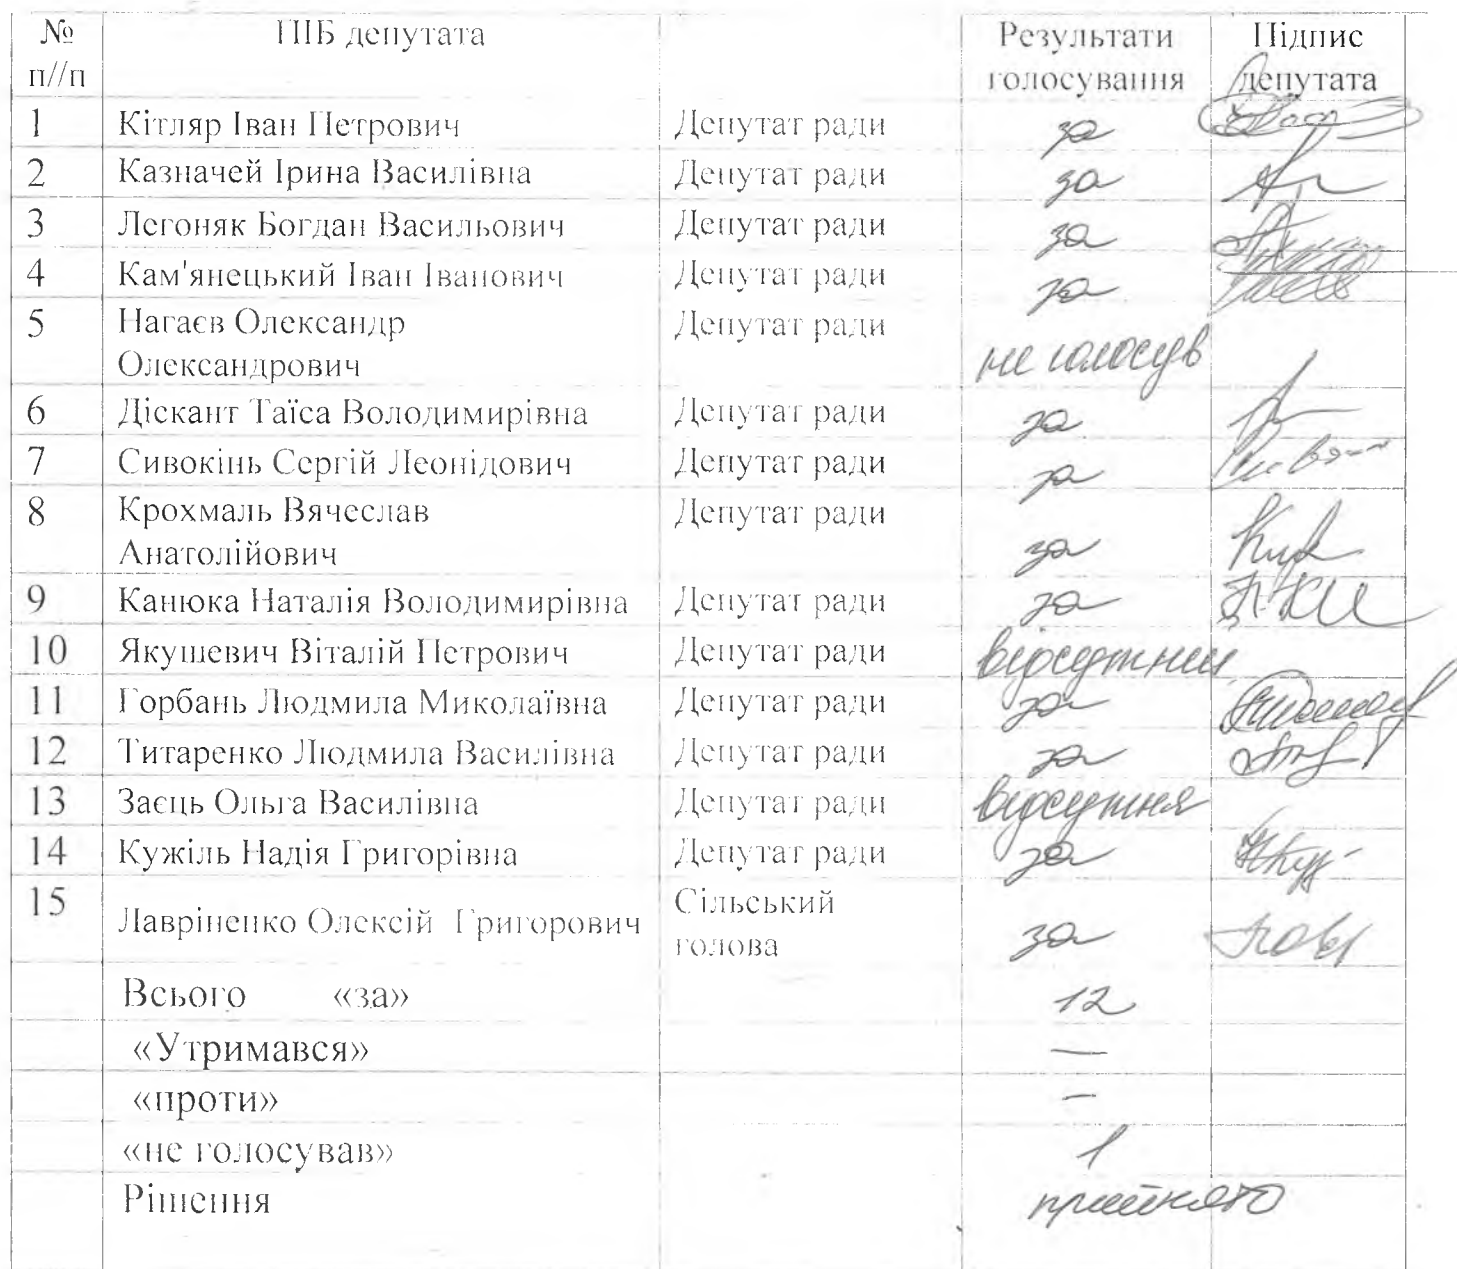 № ПІБ депутата Результати Підпис
п//п голосування депутата
1 Кітляр Іван Петрович Депутат ради за
2 Казначей Ірина Василівна Депутат ради за
3 Легоняк Богдан Васильович Депутат ради за
4 Кам'янецький Іван Іванович Депутат ради за
5 Нагаєв Олександр Депутат ради
Олександрович не голосув
6 Діскант Таїса Володимирівна Депутат ради за
7 Сивокінь Сергій Леонідович Депутат ради за
8 Крохмаль Вячеслав Депутат ради
Анатолійович за
9 Канюка Наталія Володимирівна Депутат ради за
10 Якушевич Віталій Петрович Депутат ради відсутній
11 Горбань Людмила Миколаївна Депутат ради за
12 Титаренко Людмила Василівна Депутат ради за
13 Заєць Ольга Василівна Депутат ради відсутня
14 Кужіль Надія Григорівна Депутат ради за
15 Лавріненко Олексій Григорович Сільський
голова за
Всього «за» 12
«Утримався» —
«проти» —
«не голосував» 1
Рішення прийнято